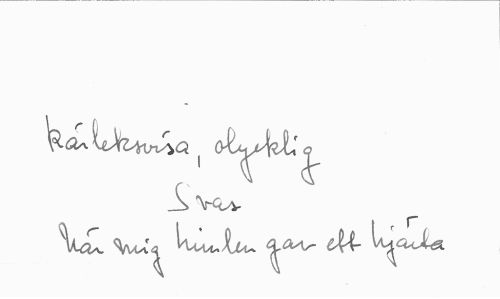 kärleksvisa, olycklig
Svar
När mig himlen gav ett hjärta